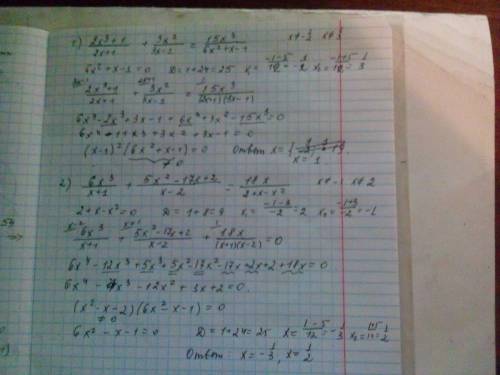 1) (2x³+1)/(2x+1) + 3x²/(3x-1) = 15x³/(6x²+x-1) x≠-1/2 x≠1/3
6x²+x-1=0 D=1+24=25 x₁=(-1-5)/12=-1/2 x₂=(-1+5)/12=1/3
(2x³+1)/(2x+1) + 3x²/(3x-1) = 15x³/((2x+1)(3x-1))
6x⁴-2x³+3x-1+6x³+3x²-15x³=0
6x⁴-11x³+3x²+3x-1=0
(x-1)²(6x²+x-1)=0 Ответ x=1.
≠0
2) 6x³/(x+1) + (5x²-17x+2)/(x-2) = 18x/(2+x-x²) x≠-1 x≠2
2+x-x²=0 D=1+8=9 x₁=(-1-3)/-2=2 x₂=(-1+3)/-2=-1
6x³/(x+1) + (5x²-17x+2)/(x-2) + 18x/((x+1)(x-2))=0
6x⁴-12x³+5x³+5x²-17x²-17x+2x+2+18x=0
6x⁴-7x³-12x²+3x+2=0
(x²-x-2)(6x²-x-1)=0
≠0
6x²-x-1=0 D=1+24=25 x₁=(1-5)/12=-1/3 x₂=(1+5)/12=1/2
Ответ: x=-1/3, x=1/2